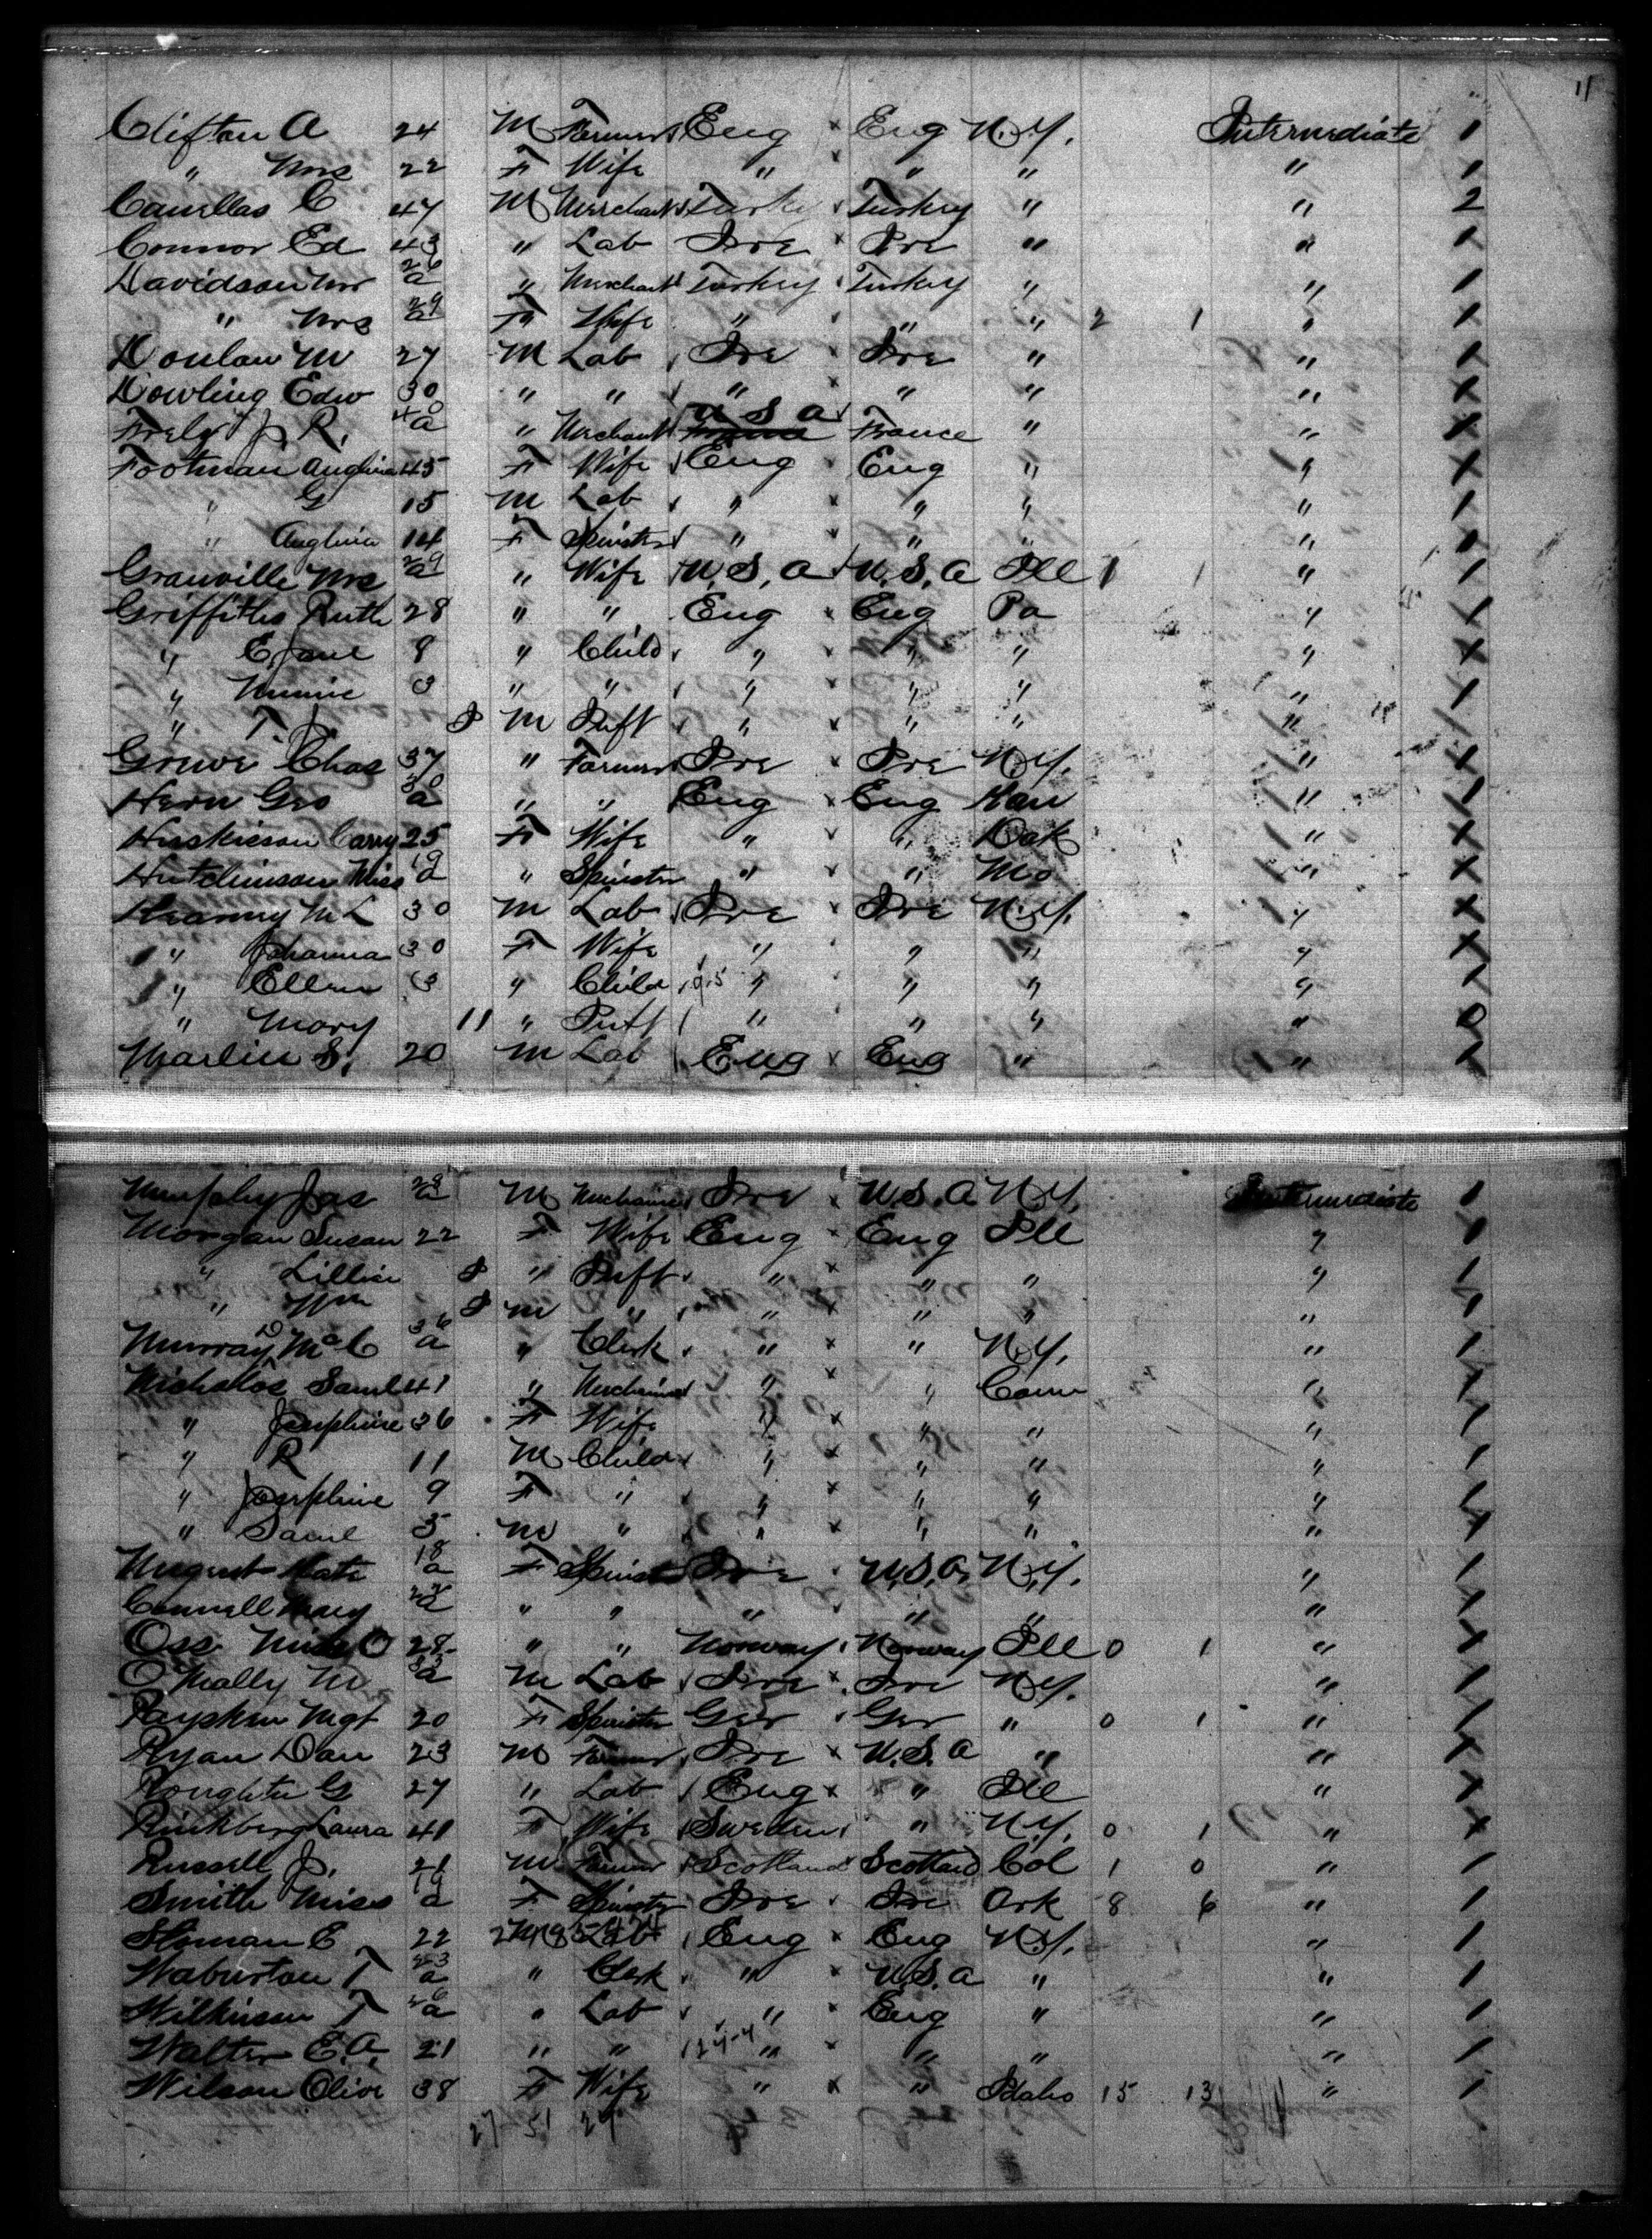 11
Clifton A 24 M Farmer Eng x Eng N.Y. Intermediate 1
" Mrs 22 F Wife " x " " " 1
Canellas C 47 M Merchant Turkey Turkey " " 2
Connor Ed 43 " Lab Ire x Ire " " 1
Davidson Mr 26 a " Merchant Turkey Turkey " " 1
" Mrs 29 a F Wife " " " 2 1 " 1
Donlan M 27 M Lab Ire x Ire " " 1
Dowling Edw 30 " " " x " " " 1
J. R. 40 a " Merchant U S A France " " 1
Footman Anglina 45 F Wife Eng Eng " " 1
" G 15 M Lab " x " " " 1
" Anglina 14 F Spinster " " " " 1
Granville Mrs 29 a " Wife U.S.A U.S.A Ill 1 1 " 1
Griffiths Ruth 28 " " Eng x Eng Pa " 1
" E. Jane 8 " Child " x " " " 1
" Minnie 3 " " " " " " 1
" T. J. 8 M Inft " x " " " 1
Chas 37 " Farmer Ire x Ire N.Y. " 1
Hern Geo 30 a " " Eng x Eng Kan " 1
Huskisson Carry 25 F Wife " x " Dak " 1
Hutchinson Miss 19 a " Spinster " " Mo " 1
Kearny M L 30 M Lab Ire x Ire N.Y. " 1
" Johanna 30 F Wife " " " " 1
" Ellen 3 " Child " " " " 1
" Mary 11 " Inft " " " " 0
S. 20 M Lab Eng x Eng " " 1
Murphy Jas a M Mechanic Ire x U.S.A N.Y. Intermediate 1
Morgan Susan 22 F Wife Eng x Eng Ill " 1
" Lillie 8 " Inft " x " " " 1
" Wm 8 M " " x " " " 1
Murray D McC 36 a " Clerk " x " N.Y. " 1
Nicholas Saml 41 " Mechanic " x " Conn " 1
" Josephine 36 F Wife " x " " " 1
" R 11 M Child " " " " 1
" Josephine 9 F " " x " " " 1
" Saml 5 M " " x " " " 1
Nugent Kate 18 a F Spinster Ire x U.S.A. N.Y. " 1
Connell Mary a " " " " " " 1
Oss Miss O 28 " " Norway Norway Ill 0 1 " 1
O'Mally M a M Lab Ire x Ire N.Y. " 1
Mgt 20 F Spinster Ger Ger " 0 1 " 1
Ryan Dan 23 M Farmer Ire x U.S.A " " 1
G 27 " Lab Eng x " Ill " 1
Laura 41 F Wife Sweden " N.Y. 0 1 " 1
Russell J. 21 M Farmer Scotland Scotland Col 1 0 " 1
Smith Miss 19 a F Spinster Ire Ire Ark 8 6 " 1
E 22 M Lab Eng x Eng N.Y. " 1
Waburton T 43 a " Clerk " x U.S.A " " 1
Wilkinson T 26 a " Lab " x Eng " " 1
Walter E. A. 21 " " " x " " " 1
Wilson Olive 38 F Wife " x " Idaho 15 13 " 1
27 51 24